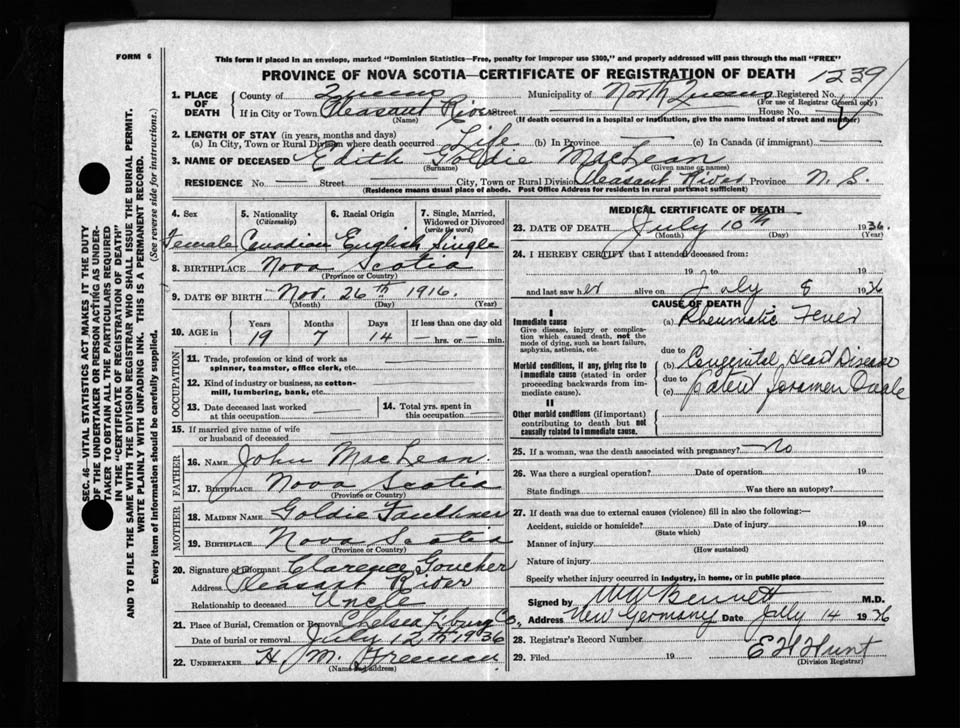 FORM 6
This form if placed in an envelope, marked "Dominion Statistics—Free, penalty for improper use $300," and properly addressed will pass through the mail "FREE"
PROVINCE OF NOVA SCOTIA—CERTIFICATE OF REGISTRATION OF DEATH
1239
1. PLACE OF DEATH
County of Queens Municipality of North Queens Registered No.
(For use of Registrar General only)
If in City or Town Pleasant River Street House No.
(Name) (If death occurred in a hospital or institution, give the name instead of street and number)
2. LENGTH OF STAY (in years, months and days)
(a) In City, Town or Rural Division where death occurred Life (b) In Province — (c) In Canada (if immigrant) —
3. NAME OF DECEASED Edith Goldie MacLean
(Surname) (Given name or names)
RESIDENCE No — Street — City, Town or Rural Division Pleasant River Province N. S.
(Residence means usual place of abode. Post Office Address for residents in rural parts not sufficient)
4. Sex 5. Nationality (Citizenship) 6. Racial Origin 7. Single, Married, Widowed or Divorced (write the word)
Female Canadian English Single
8. BIRTHPLACE Nova Scotia
(Province or Country)
9. DATE OF BIRTH Nov. 26th 1916.
(Month) (Day) (Year)
10. AGE in Years Months Days If less than one day old
19 7 14 — hrs. or — min.
OCCUPATION
11. Trade, profession or kind of work as spinner, teamster, office clerk, etc.
12. Kind of industry or business, as cotton-mill, lumbering, bank, etc.
13. Date deceased last worked at this occupation
14. Total yrs. spent in this occupation
15. If married give name of wife or husband of deceased
FATHER
16. NAME John MacLean.
17. BIRTHPLACE Nova Scotia
(Province or Country)
MOTHER
18. MAIDEN NAME Goldie Faulkner
19. BIRTHPLACE Nova Scotia
(Province or Country)
20. Signature of informant Clarence Goucher
Address Pleasant River
Relationship to deceased Uncle
21. Place of Burial, Cremation or Removal Chelsea Lburg Co.,
Date of burial or removal July 12th 1936
22. UNDERTAKER H. M. Freeman
(Name and address)
MEDICAL CERTIFICATE OF DEATH
23. DATE OF DEATH July 10th 1936.
(Month) (Day) (Year)
24. I HEREBY CERTIFY that I attended deceased from:
19 to 19
and last saw her alive on July 8 1936
CAUSE OF DEATH
I
Immediate cause (a) Rheumatic Fever
Give disease, injury or complication which caused death, not the mode of dying, such as heart failure, asphyxia, asthenia, etc.
due to
Morbid conditions, if any, giving rise to immediate cause (stated in order proceeding backwards from immediate cause).
(b) Congenital Heart Disease
due to
(c) patent foramen Ovale
II
Other morbid conditions (if important) contributing to death but not causally related to immediate cause.
25. If a woman, was the death associated with pregnancy? — no
26. Was there a surgical operation? Date of operation 19
State findings Was there an autopsy?
27. If death was due to external causes (violence) fill in also the following:—
Accident, suicide or homicide? Date of injury 19
(State which)
Manner of injury
(How sustained)
Nature of injury
Specify whether injury occurred in industry, in home, or in public place
Signed by W W Bennett M.D.
Address New Germany Date July 14 1936
28. Registrar's Record Number
29. Filed 19 E H Hunt
(Division Registrar)
SEC. 46—VITAL STATISTICS ACT MAKES IT THE DUTY
OF THE UNDERTAKER OR PERSON ACTING AS UNDER-
TAKER TO OBTAIN ALL THE PARTICULARS REQUIRED
IN THE "CERTIFICATE OF REGISTRATION OF DEATH"
AND TO FILE THE SAME WITH THE DIVISION REGISTRAR WHO SHALL ISSUE THE BURIAL PERMIT.
WRITE PLAINLY WITH UNFADING INK. THIS IS A PERMANENT RECORD.
Every item of information should be carefully supplied. (See reverse side for instructions.)